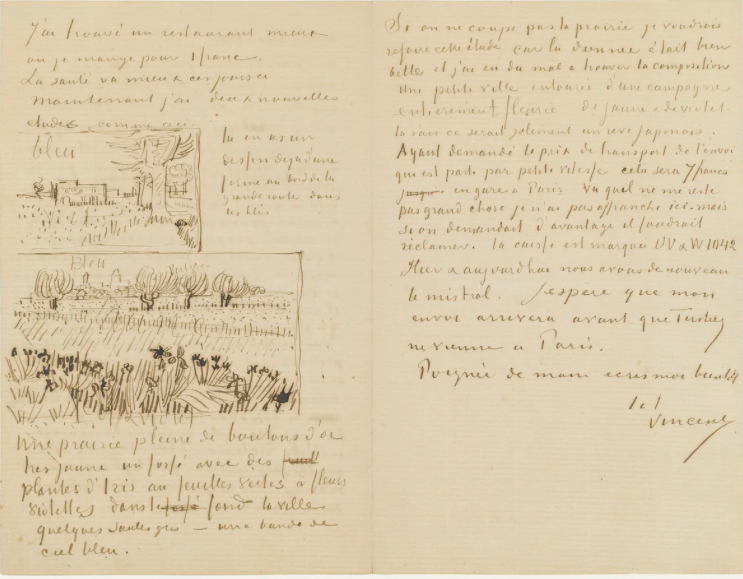 J'ai trouvé un restaurant mieux
ou je mange pour 1 franc.
La santé va mieux ces jours ci
Maintenant j'ai deux nouvelles
etudes comme ceci
bleu
tu en as un
dessin deja d'une
ferme au bord de la
grande route dans
les blés
Bleu
Une prairie pleine de boutons d'or
tres jaune un fossé avec des
plantes d'Iris au feuilles vertes à fleurs
violettes dans le fossé fond la ville
quelques saules gris – une bande de
ciel bleu.
Si on ne coupe pas la prairie je voudrais
refaire cette étude car la donnée était bien
belle et j'ai eu du mal a trouver la composition
Une petite ville entourée d'une campagne
entierement fleurie de jaune & de violet
tu sais ce serait joliment un reve japonais.
Ayant demandé le prix de transport de l'envoi
qui est parti par petite vitesse cela sera 7 francs
en gare a Paris Vu qu'il ne me reste
pas grand chose je n'ai pas affranchi ici – mais
si on demandait d'avantage il faudrait
réclamer. la caisse est marquée UV & W 1042
Hier & aujourd'hui nous avons de nouveau
le mistral. J'espère que mon
envoi arrivera avant que Tersteeg
ne vienne a Paris.
Poignée de main ecris moi bientôt
t. à t.
Vincent